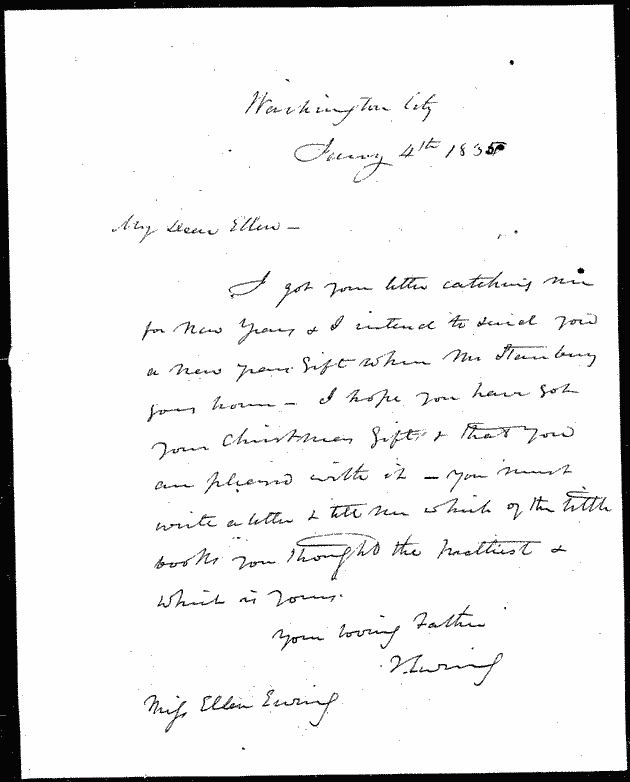 Washington City
Jany 4th 1835
My Dear Ellen –
I got your letter catching me
for New Years & I intend to send you
a New years Gift when Mr Stanbury
goes home – I hope you have got
your Christmas Gift & that you
are pleased with it – you must
write a letter & tell me which of the little
books you thought the prettiest &
which is yours.
Your loving Father
T Ewing
Miss Ellen Ewing